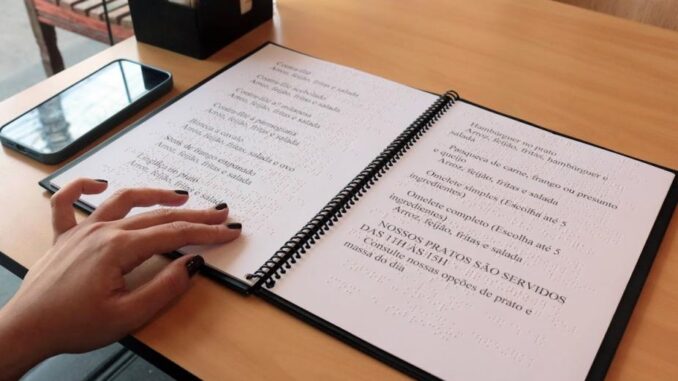 Contra-filé
Arroz, feijão, fritas e salada
Contra-filé acebolado
Arroz, feijão, fritas e salada
Contra-filé a milanesa
Arroz, feijão, fritas e salada
Contra-filé à parmegiana
Arroz, feijão, fritas e salada
Bisteca à cavalo
Arroz, feijão, fritas, salada e ovo
frango empanado
Arroz, feijão, fritas e salada
Hambúrguer no prato
Arroz, feijão, fritas, hambúrguer e
salada
Panqueca de carne, frango ou presunto
e queijo
Arroz, feijão, fritas e salada
Omelete simples (Escolha até 5
ingredientes)
Omelete completo (Escolha até 5
ingredientes)
Arroz, feijão, fritas e salada
NOSSOS PRATOS SÃO SERVIDOS
DAS 11H ÀS 15H
Consulte nossas opções de prato e
massa do dia